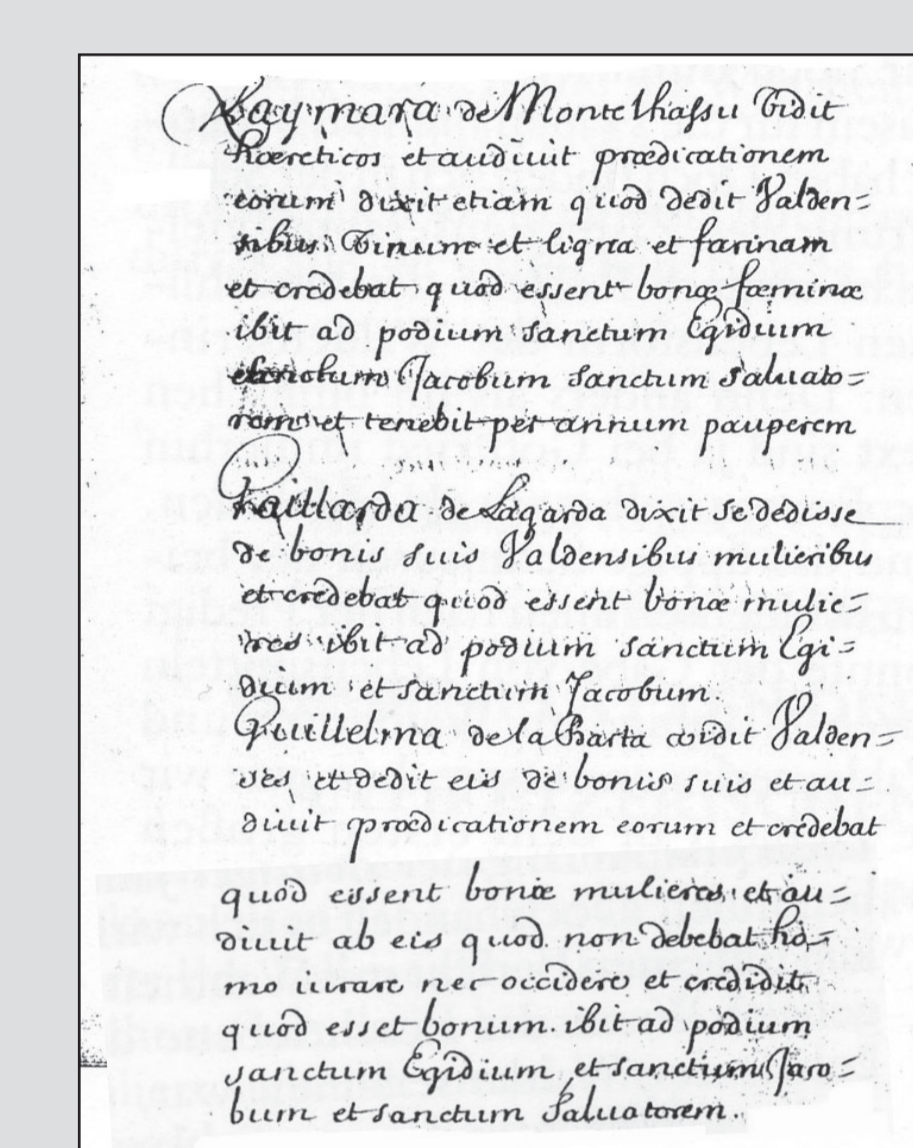 Raymara de Montelhassu vidit
hæreticos et audiuit prædicationem
eorum dixit etiam quod dedit Valden=
sibus vinum et ligna et farinam
et credebat quod essent bonæ fœminæ
ibit ad podium sanctum Egidium
Jacobum sanctum saluato=
rem et tenebit per annum pauperem
Gaillarda de Lagarda dixit se dedisse
de bonis suis Valdensibus mulieribus
et credebat quod essent bonæ mulie=
res ibit ad podium sanctum Egi=
dium et sanctum Jacobum.
Guillelma de la Barta vidit Valden=
ses et dedit eis de bonis suis et au=
diuit prædicationem eorum et credebat
quod essent bonæ mulieres et au=
diuit ab eis quod non debebat ho=
mo iurare nec occidere et credidit
quod esset bonum. ibit ad podium
sanctum Egidium et sanctum Jaco=
bum et sanctum Saluatorem.